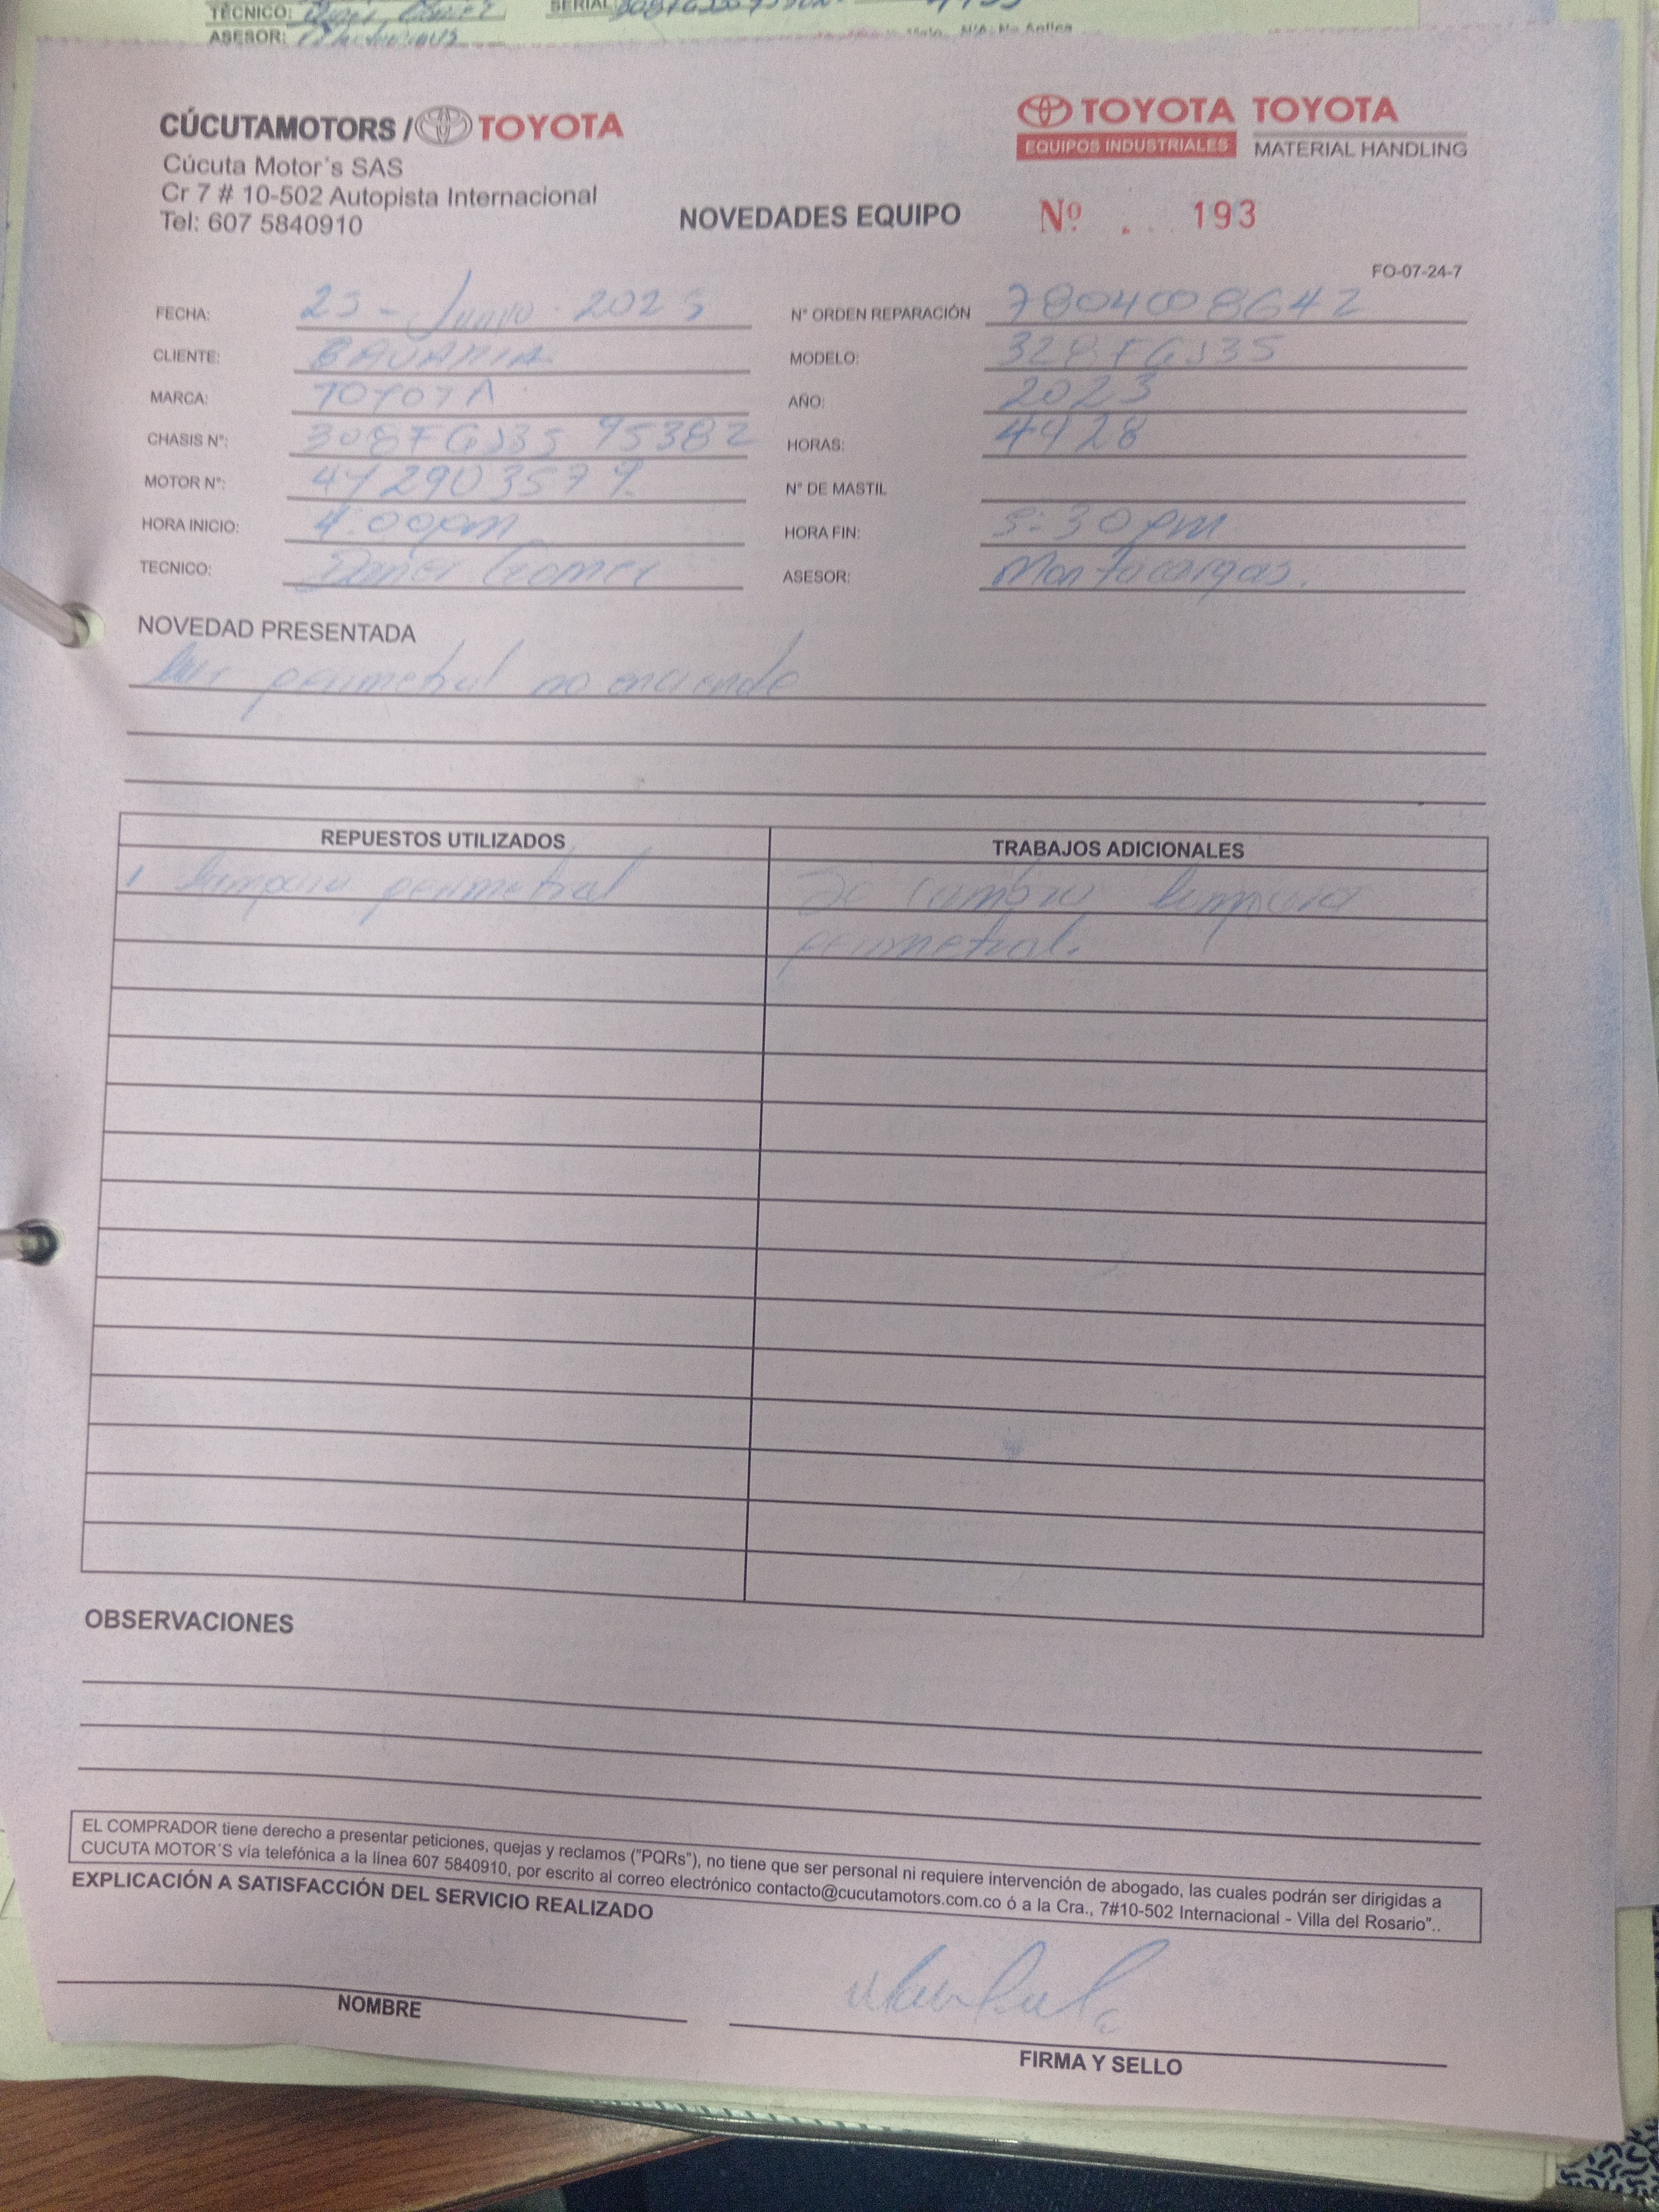 TÉCNICO:
SERIAL:
ASESOR:
N/A: No Aplica
CÚCUTAMOTORS / TOYOTA
Cúcuta Motor's SAS
Cr 7 # 10-502 Autopista Internacional
Tel: 607 5840910
TOYOTA EQUIPOS INDUSTRIALES
TOYOTA MATERIAL HANDLING
NOVEDADES EQUIPO
Nº 193
FO-07-24-7
FECHA: 25 - Junio - 2025
N° ORDEN REPARACIÓN 7804008642
CLIENTE: BAVARIA
MODELO: 328FGJ35
MARCA: TOYOTA
AÑO: 2023
CHASIS N°: 308FGJ35 95382
HORAS: 4928
MOTOR N°:
N° DE MASTIL
HORA INICIO: 4:00pm
HORA FIN: 5:30 pm
TECNICO: Daniel Gomez
ASESOR: Montacargas.
NOVEDAD PRESENTADA
luz perimetral no enciende
REPUESTOS UTILIZADOS
TRABAJOS ADICIONALES
1 lampara perimetral
Se cambio lampara
perimetral.
OBSERVACIONES
EL COMPRADOR tiene derecho a presentar peticiones, quejas y reclamos ("PQRs"), no tiene que ser personal ni requiere intervención de abogado, las cuales podrán ser dirigidas a
CUCUTA MOTOR'S vía telefónica a la línea 607 5840910, por escrito al correo electrónico contacto@cucutamotors.com.co ó a la Cra., 7#10-502 Internacional - Villa del Rosario"..
EXPLICACIÓN A SATISFACCIÓN DEL SERVICIO REALIZADO
NOMBRE
FIRMA Y SELLO